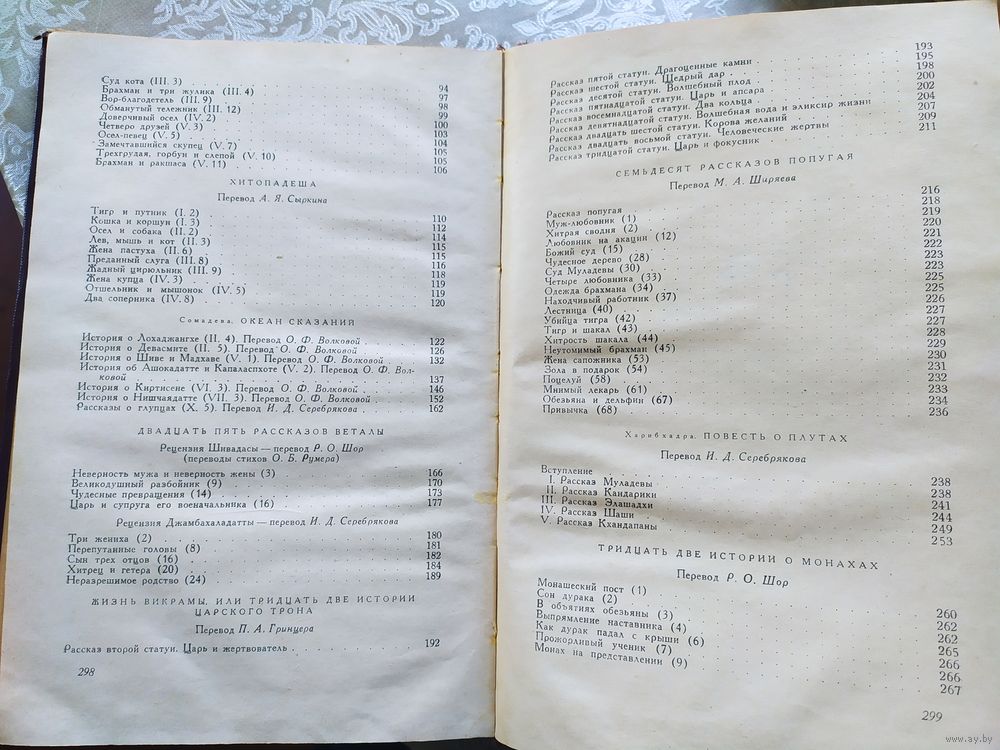 Суд кота (III. 3) 94
Брахман и три жулика (III. 4) 97
Вор-благодетель (III. 9) 98
Обманутый тележник (III. 12) 99
Доверчивый осел (IV. 2) 100
Четверо друзей (V. 3) 103
Осел-певец (V. 5) 104
Замечтавшийся скупец (V. 7) 105
Трехгрудая, горбун и слепой (V. 10) 105
Брахман и ракшаса (V. 11) 106
ХИТОПАДЕША
Перевод А. Я. Сыркина
Тигр и путник (I. 2) 110
Кошка и коршун (I. 3) 112
Осел и собака (II. 2) 114
Лев, мышь и кот (II. 3) 115
Жена пастуха (II. 6) 115
Преданный слуга (III. 8) 116
Жадный цирюльник (III. 9) 118
Жена купца (IV. 3) 119
Отшельник и мышонок (IV. 5) 119
Два соперника (IV. 8) 120
Сомадева. ОКЕАН СКАЗАНИЙ
История о Лохаджангхе (II. 4). Перевод О. Ф. Волковой 122
История о Девасмите (II. 5). Перевод О. Ф. Волковой 126
История о Шиве и Мадхаве (V. 1). Перевод О. Ф. Волковой 132
История об Ашокадатте и Капаласпхоте (V. 2). Перевод О. Ф. Вол-
ковой 137
История о Киртисене (VI. 3). Перевод О. Ф. Волковой 146
История о Нишчаядатте (VII. 3). Перевод О. Ф. Волковой 152
Рассказы о глупцах (X. 5). Перевод И. Д. Серебрякова 162
ДВАДЦАТЬ ПЯТЬ РАССКАЗОВ ВЕТАЛЫ
Рецензия Шивадасы — перевод Р. О. Шор
(переводы стихов О. Б. Румера)
Неверность мужа и неверность жены (3) 166
Великодушный разбойник (9) 170
Чудесные превращения (14) 173
Царь и супруга его военачальника (16) 177
Рецензия Джамбхаладатты — перевод И. Д. Серебрякова
Три жениха (2) 180
Перепутанные головы (8) 181
Сын трех отцов (16) 182
Хитрец и гетера (20) 184
Неразрешимое родство (24) 189
ЖИЗНЬ ВИКРАМЫ, ИЛИ ТРИДЦАТЬ ДВЕ ИСТОРИИ
ЦАРСКОГО ТРОНА
Перевод П. А. Гринцера
Рассказ второй статуи. Царь и жертвователь 192
298
Рассказ пятой статуи. Драгоценные камни 193
Рассказ шестой статуи. Щедрый дар 195
Рассказ десятой статуи. Волшебный плод 198
Рассказ пятнадцатой статуи. Царь и апсара 200
Рассказ восемнадцатой статуи. Два кольца 202
Рассказ девятнадцатой статуи. Волшебная вода и эликсир жизни 204
Рассказ двадцать шестой статуи. Корова желаний 207
Рассказ двадцать восьмой статуи. Человеческие жертвы 209
Рассказ тридцатой статуи. Царь и фокусник 211
СЕМЬДЕСЯТ РАССКАЗОВ ПОПУГАЯ
Перевод М. А. Ширяева
Рассказ попугая 216
Муж-любовник (1) 218
Хитрая сводня (2) 219
Любовник на акации (12) 220
Божий суд (15) 221
Чудесное дерево (28) 222
Суд Муладевы (30) 223
Четыре любовника (33) 223
Одежда брахмана (34) 225
Находчивый работник (37) 225
Лестница (40) 226
Убийца тигра (42) 227
Тигр и шакал (43) 227
Хитрость шакала (44) 228
Неутомимый брахман (45) 229
Жена сапожника (53) 230
Зола в подарок (54) 231
Поцелуй (58) 232
Мнимый лекарь (61) 233
Обезьяна и дельфин (67) 234
Привычка (68) 236
Харибхадра. ПОВЕСТЬ О ПЛУТАХ
Перевод И. Д. Серебрякова
Вступление 238
I. Рассказ Муладевы 238
II. Рассказ Кандарики 241
III. Рассказ Элашадхи 244
IV. Рассказ Шаши 249
V. Рассказ Кхандапаны 253
ТРИДЦАТЬ ДВЕ ИСТОРИИ О МОНАХАХ
Перевод Р. О. Шор
Монашеский пост (1) 260
Сон дурака (2) 262
В объятиях обезьяны (3) 262
Выпрямление наставника (4) 265
Как дурак падал с крыши (6) 266
Прожорливый ученик (7) 266
Монах на представлении (9) 267
299
www.ay.by